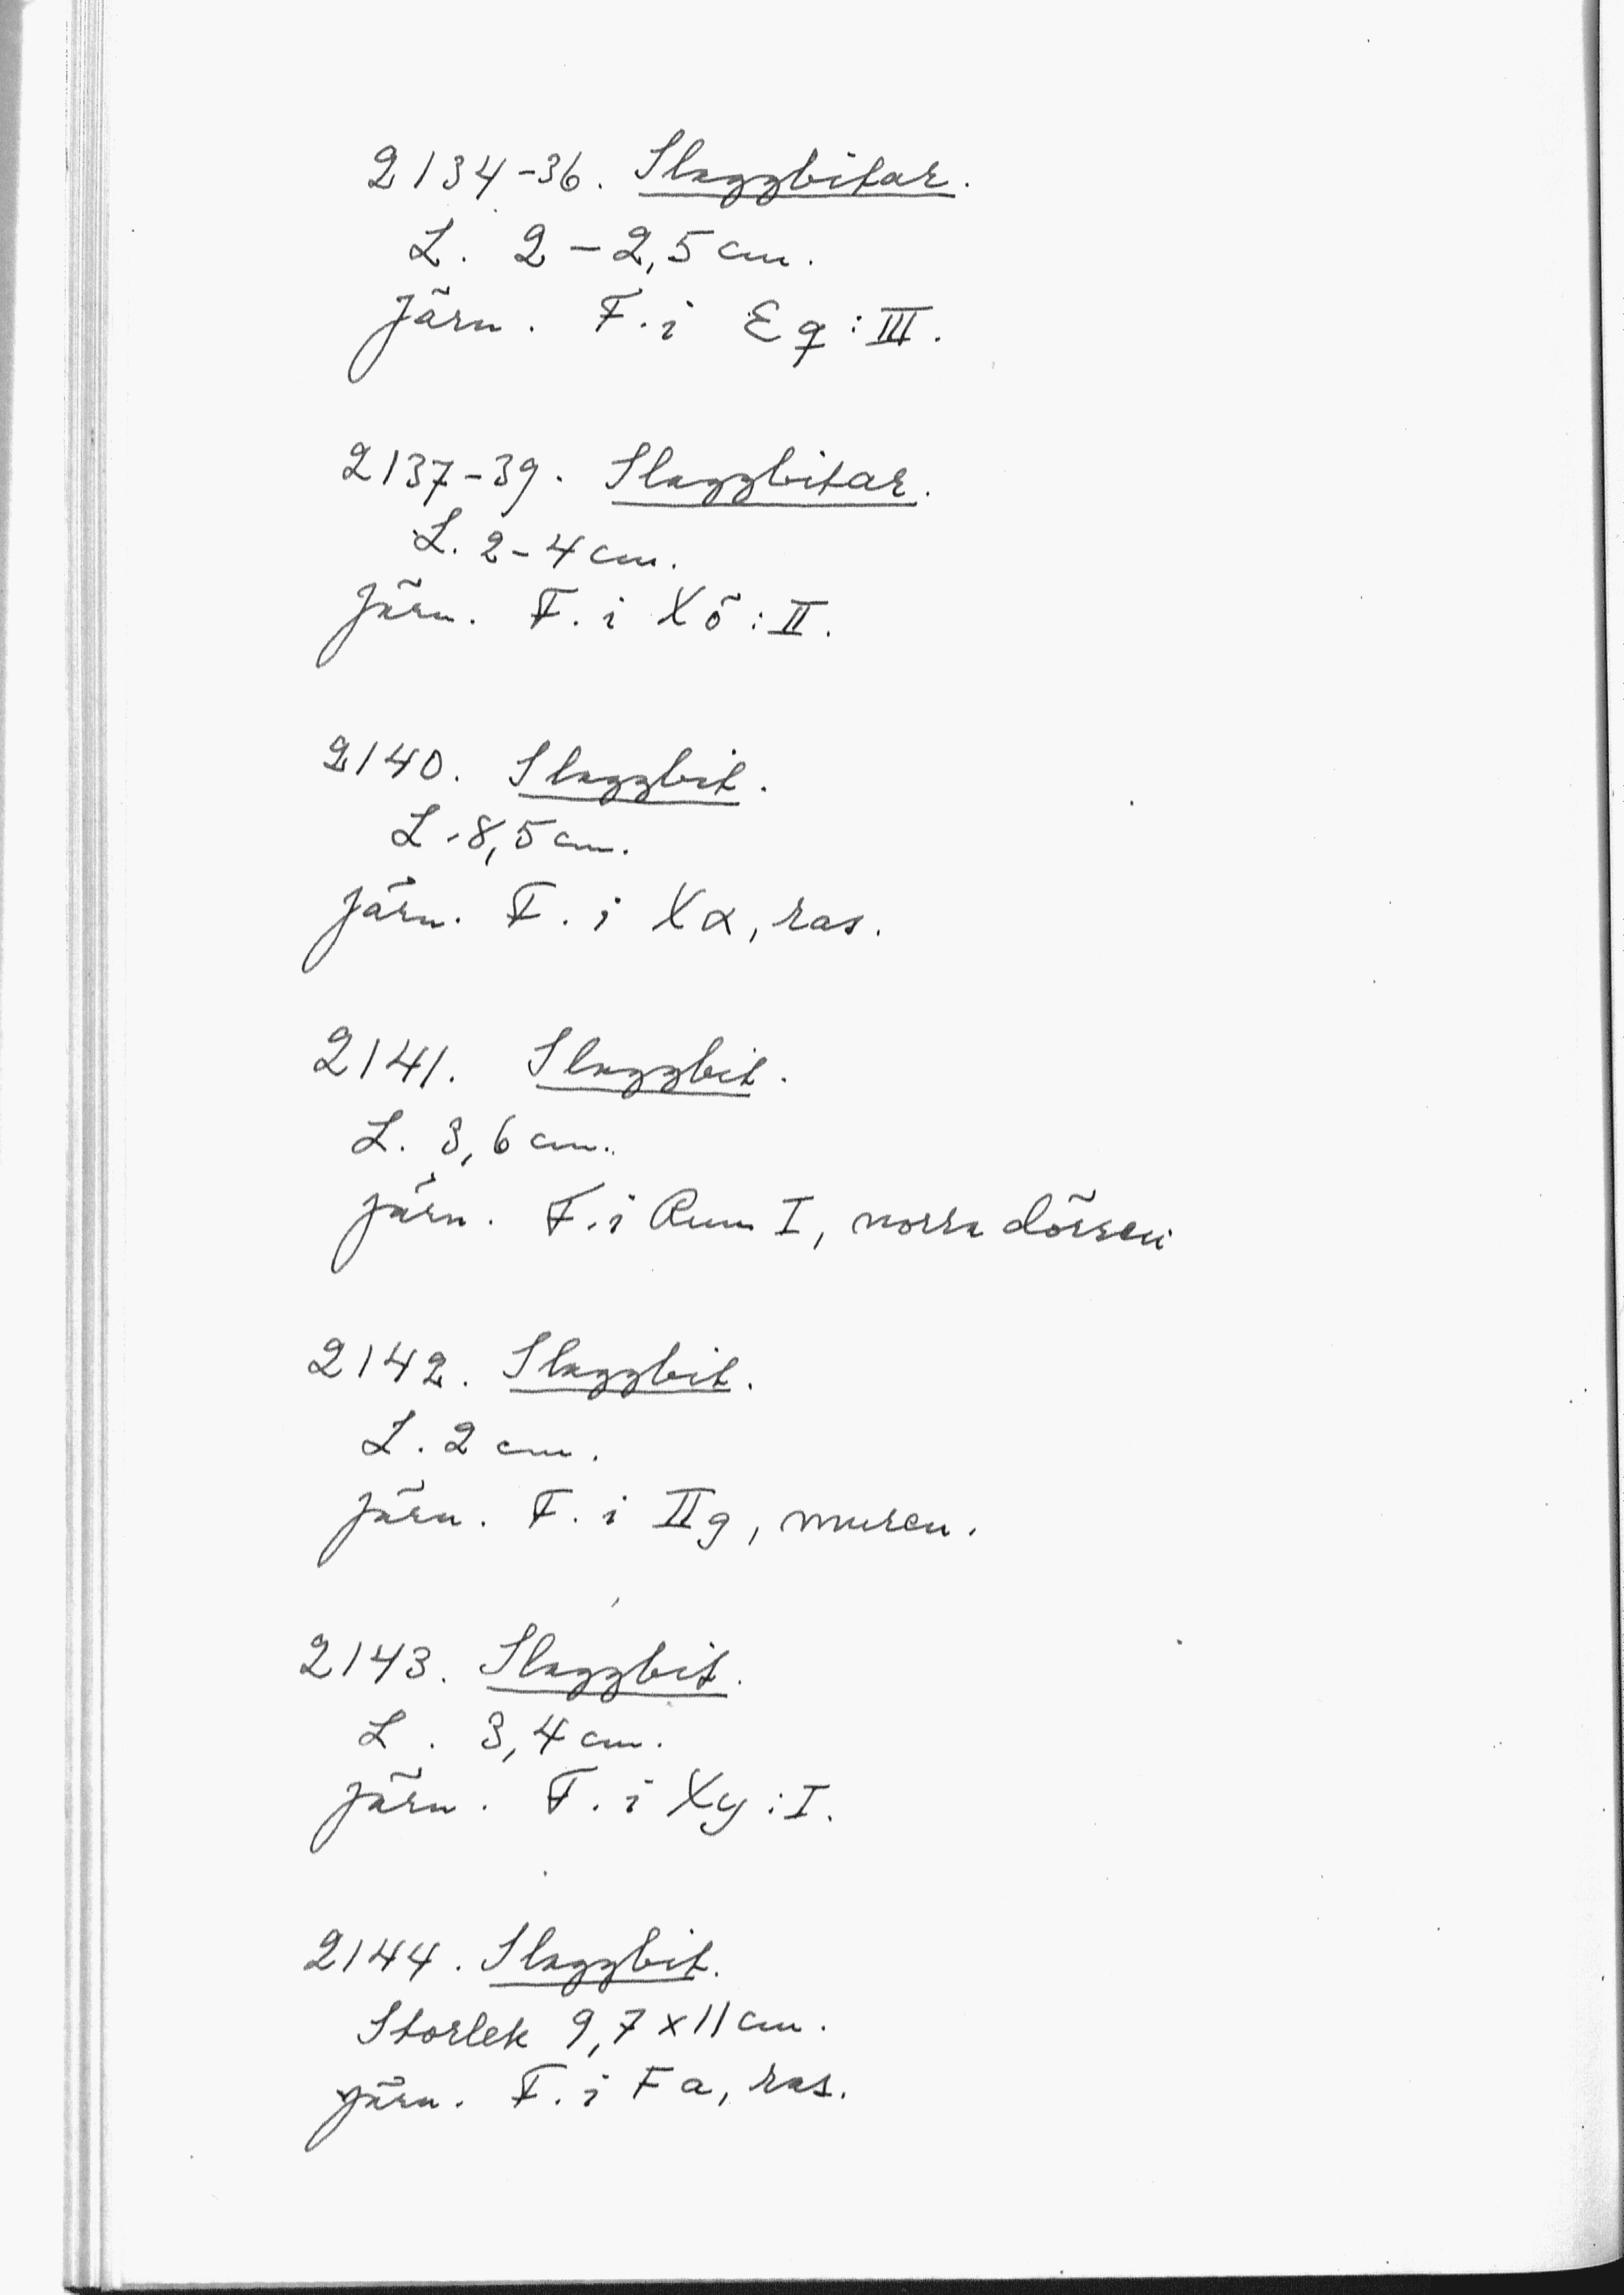 2134-36. Slaggbitar.
L. 2-2,5 cm.
Järn. F. i Eq:III.
2137-39. Slaggbitar.
L. 2-4 cm.
Järn. F. i Xö:II.
2140. Slaggbit.
L. 8,5 cm.
Järn. F. i Xα, ras.
2141. Slaggbit.
L. 3,6 cm.
Järn. F. i Rum I, norra dörren
2142. Slaggbit.
L. 2 cm.
Järn. F. i IIg, muren.
2143. Slaggbit.
L. 3,4 cm.
Järn. F. i Xy:I.
2144. Slaggbit.
Storlek 9,7 x 11 cm.
Järn. F. i Fa, ras.